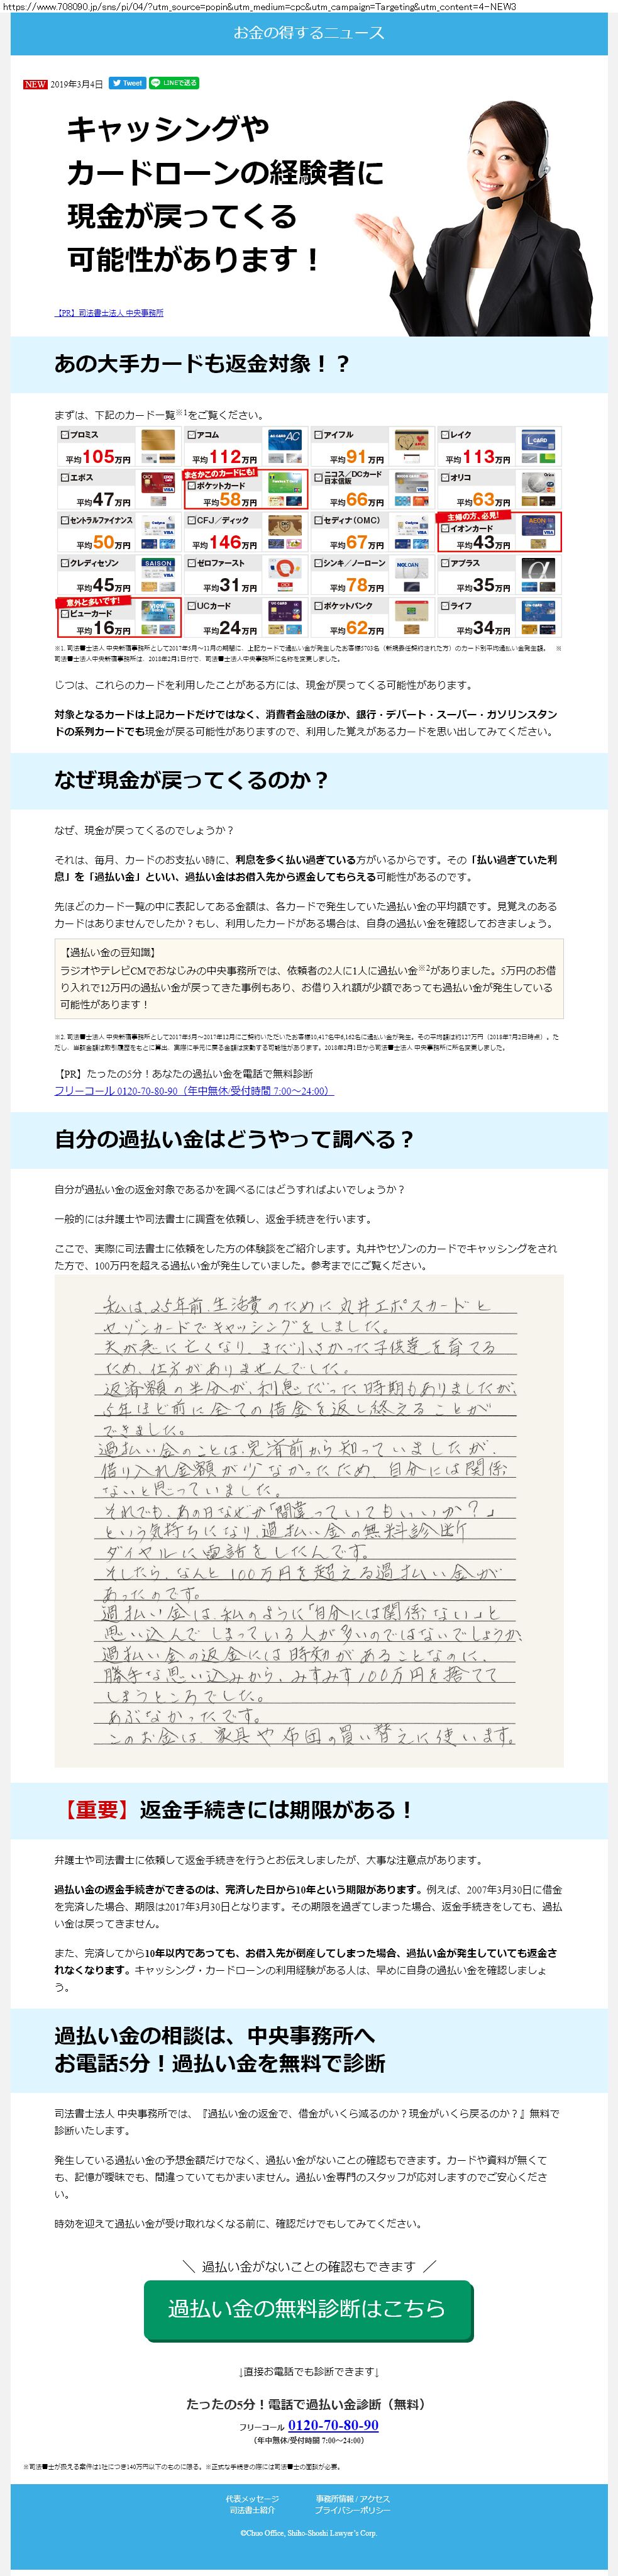 https://www.708090.jp/sns/pi/04/?utm_source=popin&utm_medium=cpc&utm_campaign=Targeting&utm_content=4-NEW3
お金の得するニュース
NEW 2019年3月4日 Tweet LINEで送る
キャッシングや
カードローンの経験者に
現金が戻ってくる
可能性があります！
【PR】司法書士法人 中央事務所
あの大手カードも返金対象！？
まずは、下記のカード一覧※1をご覧ください。
プロミス 平均105万円
アコム 平均112万円
アイフル 平均91万円
レイク 平均113万円
エポス 平均47万円
まさかこのカードにも!
ポケットカード 平均58万円
ニコス／DCカード
日本信販 平均66万円
オリコ 平均63万円
セントラルファイナンス 平均50万円
CFJ／ディック 平均146万円
セディナ（OMC） 平均67万円
主婦の方、必見！
イオンカード 平均43万円
クレディセゾン 平均45万円
ゼロファースト 平均31万円
シンキ／ノーローン 平均78万円
アプラス 平均35万円
意外と多いです！
ビューカード 平均16万円
UCカード 平均24万円
ポケットバンク 平均62万円
ライフ 平均34万円
※1. 司法■士法人 中央新宿事務所として2017年5月～11月の期間に、上記カードで過払い金が発生したお客様5703名（新規委任契約された方）のカード別平均過払い金発生額。 ※
司法■士法人中央新宿事務所は、2018年2月1日付で、司法■士法人中央事務所に名称を変更しました。
じつは、これらのカードを利用したことがある方には、現金が戻ってくる可能性があります。
対象となるカードは上記カードだけではなく、消費者金融のほか、銀行・デパート・スーパー・ガソリンスタン
ドの系列カードでも現金が戻る可能性がありますので、利用した覚えがあるカードを思い出してみてください。
なぜ現金が戻ってくるのか？
なぜ、現金が戻ってくるのでしょうか？
それは、毎月、カードのお支払い時に、利息を多く払い過ぎている方がいるからです。その「払い過ぎていた利
息」を「過払い金」といい、過払い金はお借入先から返金してもらえる可能性があるのです。
先ほどのカード一覧の中に表記してある金額は、各カードで発生していた過払い金の平均額です。見覚えのある
カードはありませんでしたか？もし、利用したカードがある場合は、自身の過払い金を確認しておきましょう。
【過払い金の豆知識】
ラジオやテレビCMでおなじみの中央事務所では、依頼者の2人に1人に過払い金※2がありました。5万円のお借
り入れで12万円の過払い金が戻ってきた事例もあり、お借り入れ額が少額であっても過払い金が発生している
可能性があります！
※2. 司法■士法人 中央新宿事務所として2017年5月～2017年12月にご契約いただいたお客様10,417名中6,162名に過払い金が発生。その平均額は約127万円（2018年7月2日時点）。ただ
し、当該金額は取引履歴をもとに算出、実際に手元に戻る金額は変動する可能性があります。2018年2月1日から司法■士法人 中央事務所に所名変更しました。
【PR】たったの5分！あなたの過払い金を電話で無料診断
フリーコール 0120-70-80-90（年中無休/受付時間 7:00～24:00）
自分の過払い金はどうやって調べる？
自分が過払い金の返金対象であるかを調べるにはどうすればよいでしょうか？
一般的には弁護士や司法書士に調査を依頼し、返金手続きを行います。
ここで、実際に司法書士に依頼をした方の体験談をご紹介します。丸井やセゾンのカードでキャッシングをされ
た方で、100万円を超える過払い金が発生していました。参考までにご覧ください。
私は、25年前、生活費のために丸井エポスカードと
セゾンカードでキャッシングをしました。
夫が急に亡くなり、まだ小さかった子供達を育てる
ため、仕方がありませんでした。
返済額の半分が、利息だった時期もありましたが、
5年ほど前に全ての借金を返し終えることが
できました。
過払い金のことは、完済前から知っていましたが、
借り入れ金額が少なかったため、自分には関係
ないと思っていました。
それでも、あの日なぜか「間違っていてもいいか？」
という気持ちになり、過払い金の無料診断
ダイヤルに電話をしたんです。
そしたら、なんと100万円を超える過払い金が
あったのです。
過払い金は、私のように「自分には関係ない」と
思い込んでしまっている人が多いのではないでしょうか。
過払い金の返金には時効があることなのに、
勝手な思い込みから、みすみす100万円を捨てて
しまうところでした。
あぶなかったです。
このお金は、家具や布団の買い替えに使います。
【重要】返金手続きには期限がある！
弁護士や司法書士に依頼して返金手続きを行うとお伝えしましたが、大事な注意点があります。
過払い金の返金手続きができるのは、完済した日から10年という期限があります。例えば、2007年3月30日に借金
を完済した場合、期限は2017年3月30日となります。その期限を過ぎてしまった場合、返金手続きをしても、過払
い金は戻ってきません。
また、完済してから10年以内であっても、お借入先が倒産してしまった場合、過払い金が発生していても返金さ
れなくなります。キャッシング・カードローンの利用経験がある人は、早めに自身の過払い金を確認しましょ
う。
過払い金の相談は、中央事務所へ
お電話5分！過払い金を無料で診断
司法書士法人 中央事務所では、『過払い金の返金で、借金がいくら減るのか？現金がいくら戻るのか？』無料で
診断いたします。
発生している過払い金の予想金額だけでなく、過払い金がないことの確認もできます。カードや資料が無くて
も、記憶が曖昧でも、間違っていてもかまいません。過払い金専門のスタッフが応対しますのでご安心くださ
い。
時効を迎えて過払い金が受け取れなくなる前に、確認だけでもしてみてください。
＼ 過払い金がないことの確認もできます ／
過払い金の無料診断はこちら
↓直接お電話でも診断できます↓
たったの5分！電話で過払い金診断（無料）
フリーコール 0120-70-80-90
（年中無休/受付時間 7:00～24:00）
※司法■士が扱える案件は1社につき140万円以下のものに限る。※正式な手続きの際には司法■士の面談が必要。
代表メッセージ 事務所情報 / アクセス
司法書士紹介 プライバシーポリシー
©Chuo Office, Shiho-Shoshi Lawyer's Corp.